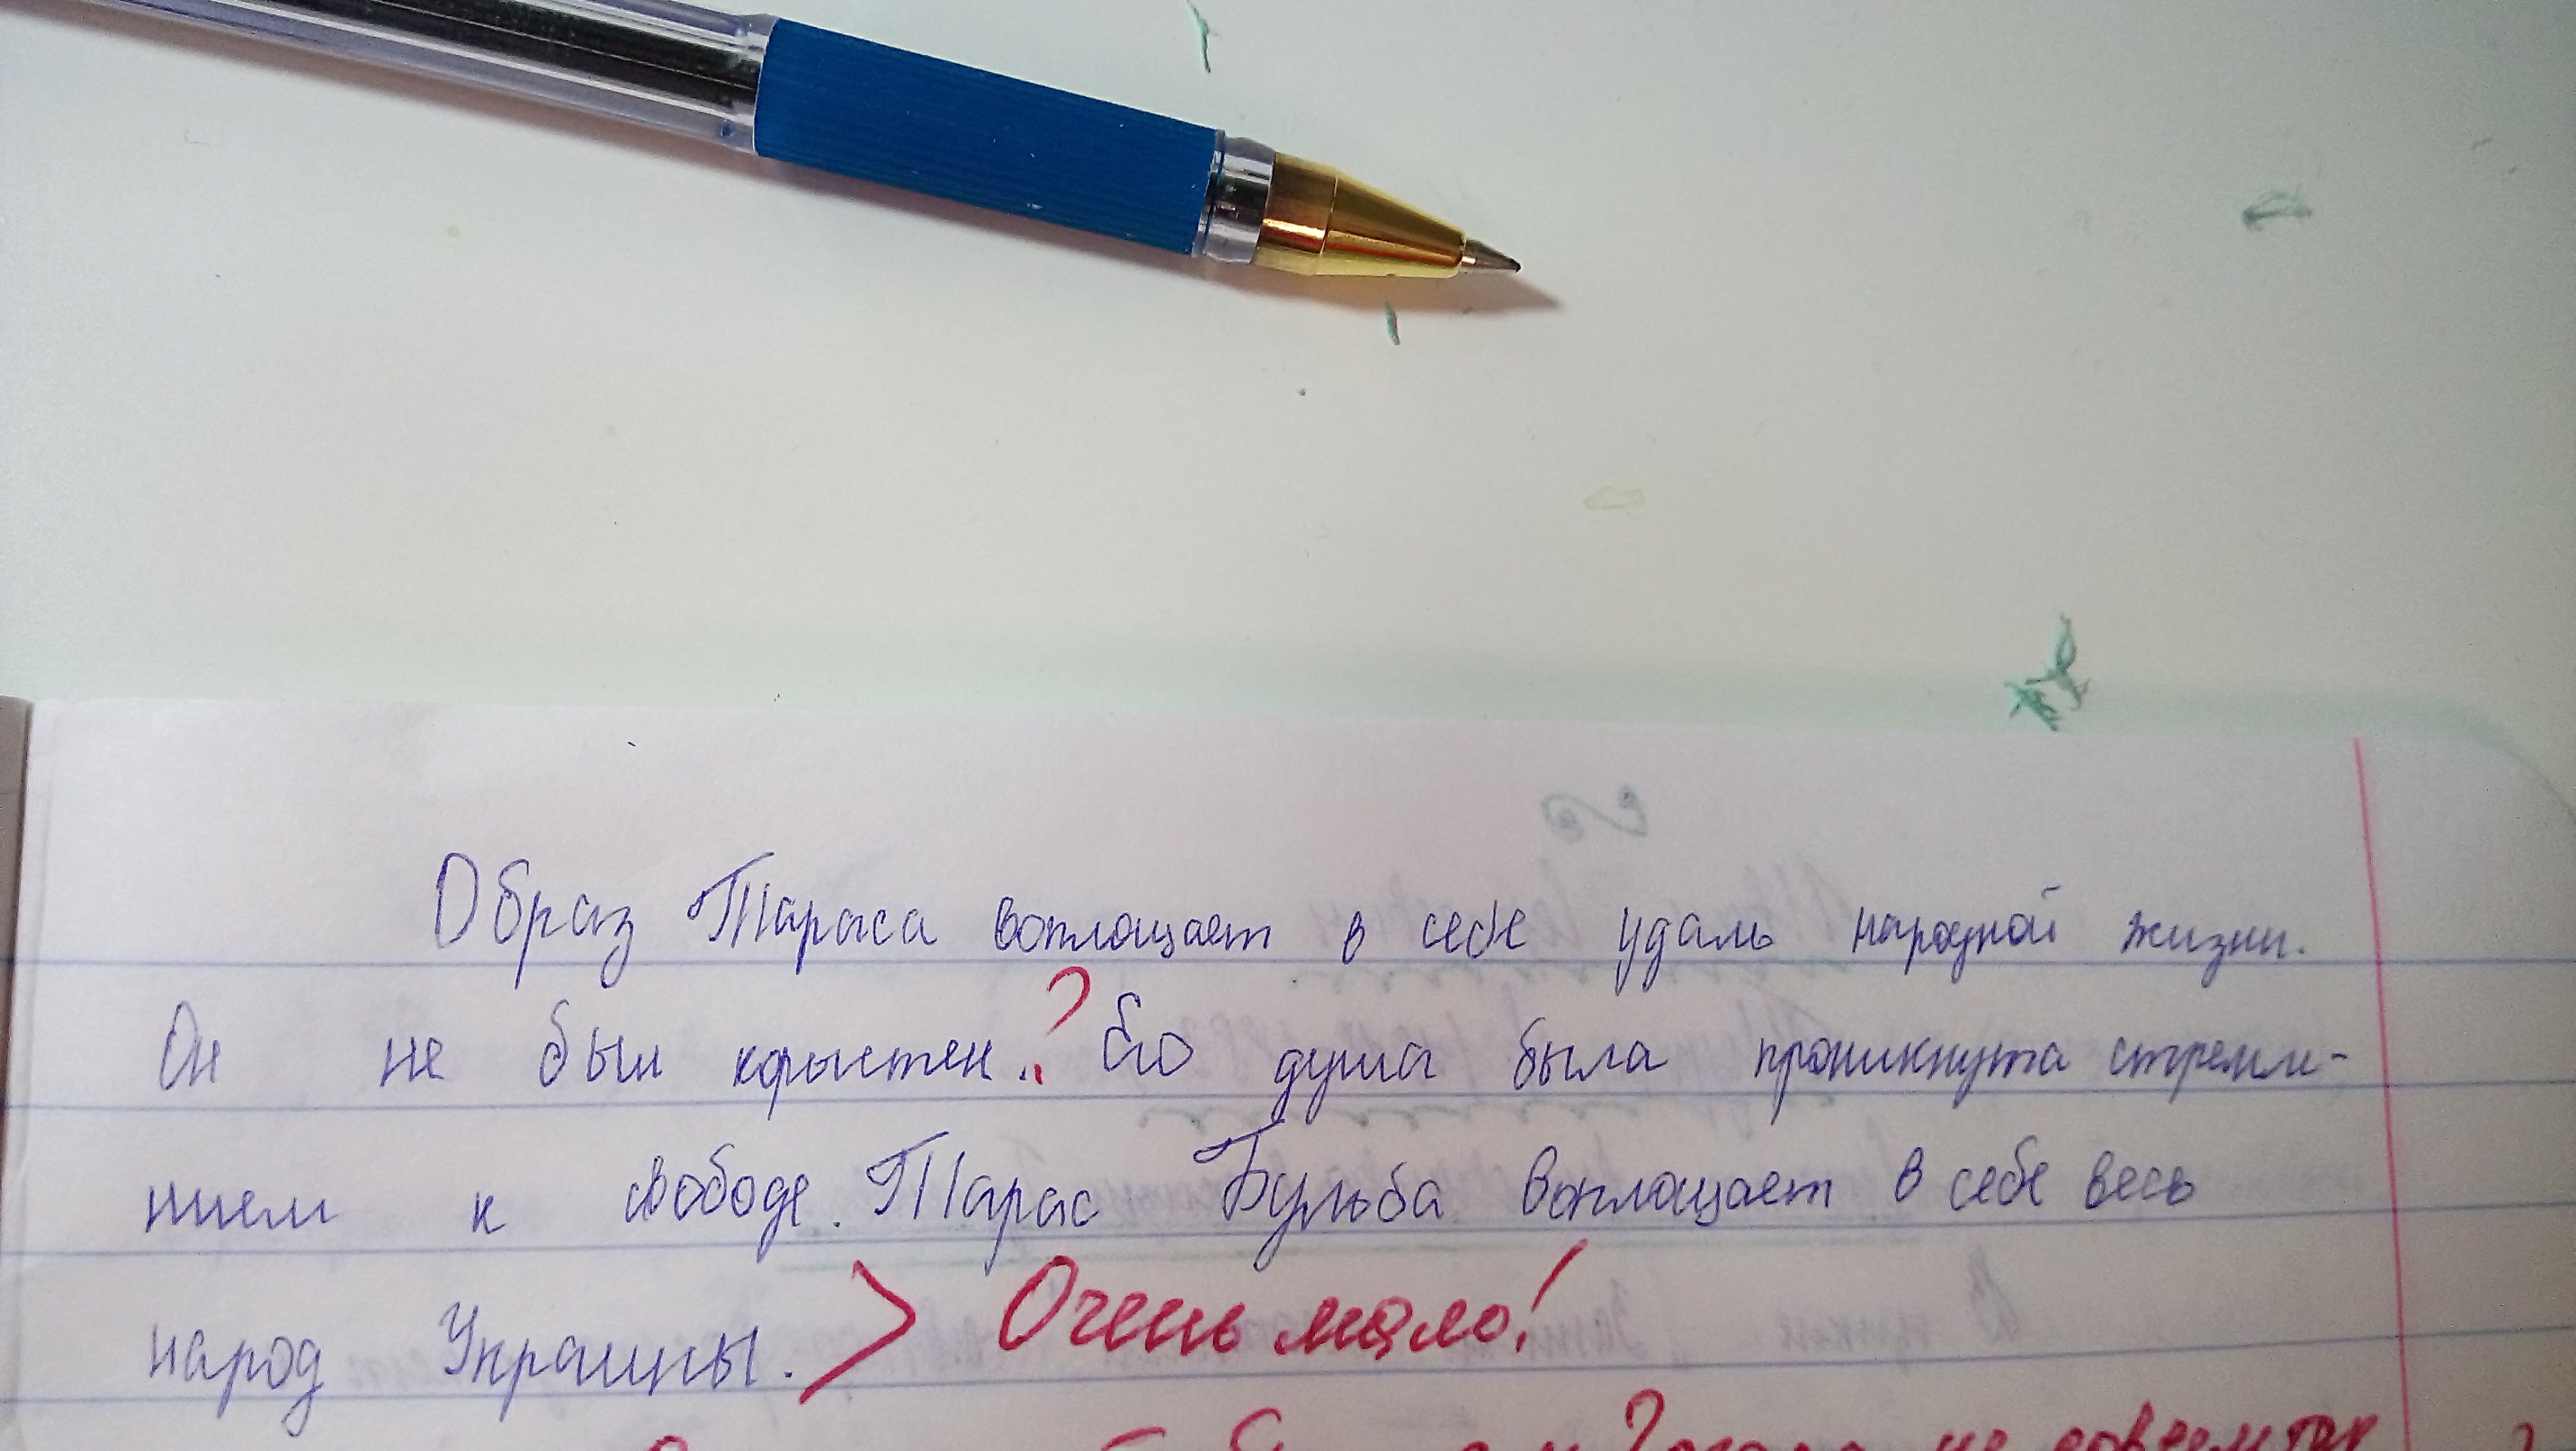 Образ Тараса воплощает в себе удаль народной жизни.
Он не был корыстен..? Его душа была проникнута стремле-
нием к свободе. Тарас Бульба воплощает в себе весь
народ Украины. > Очень мало!
не совсем так